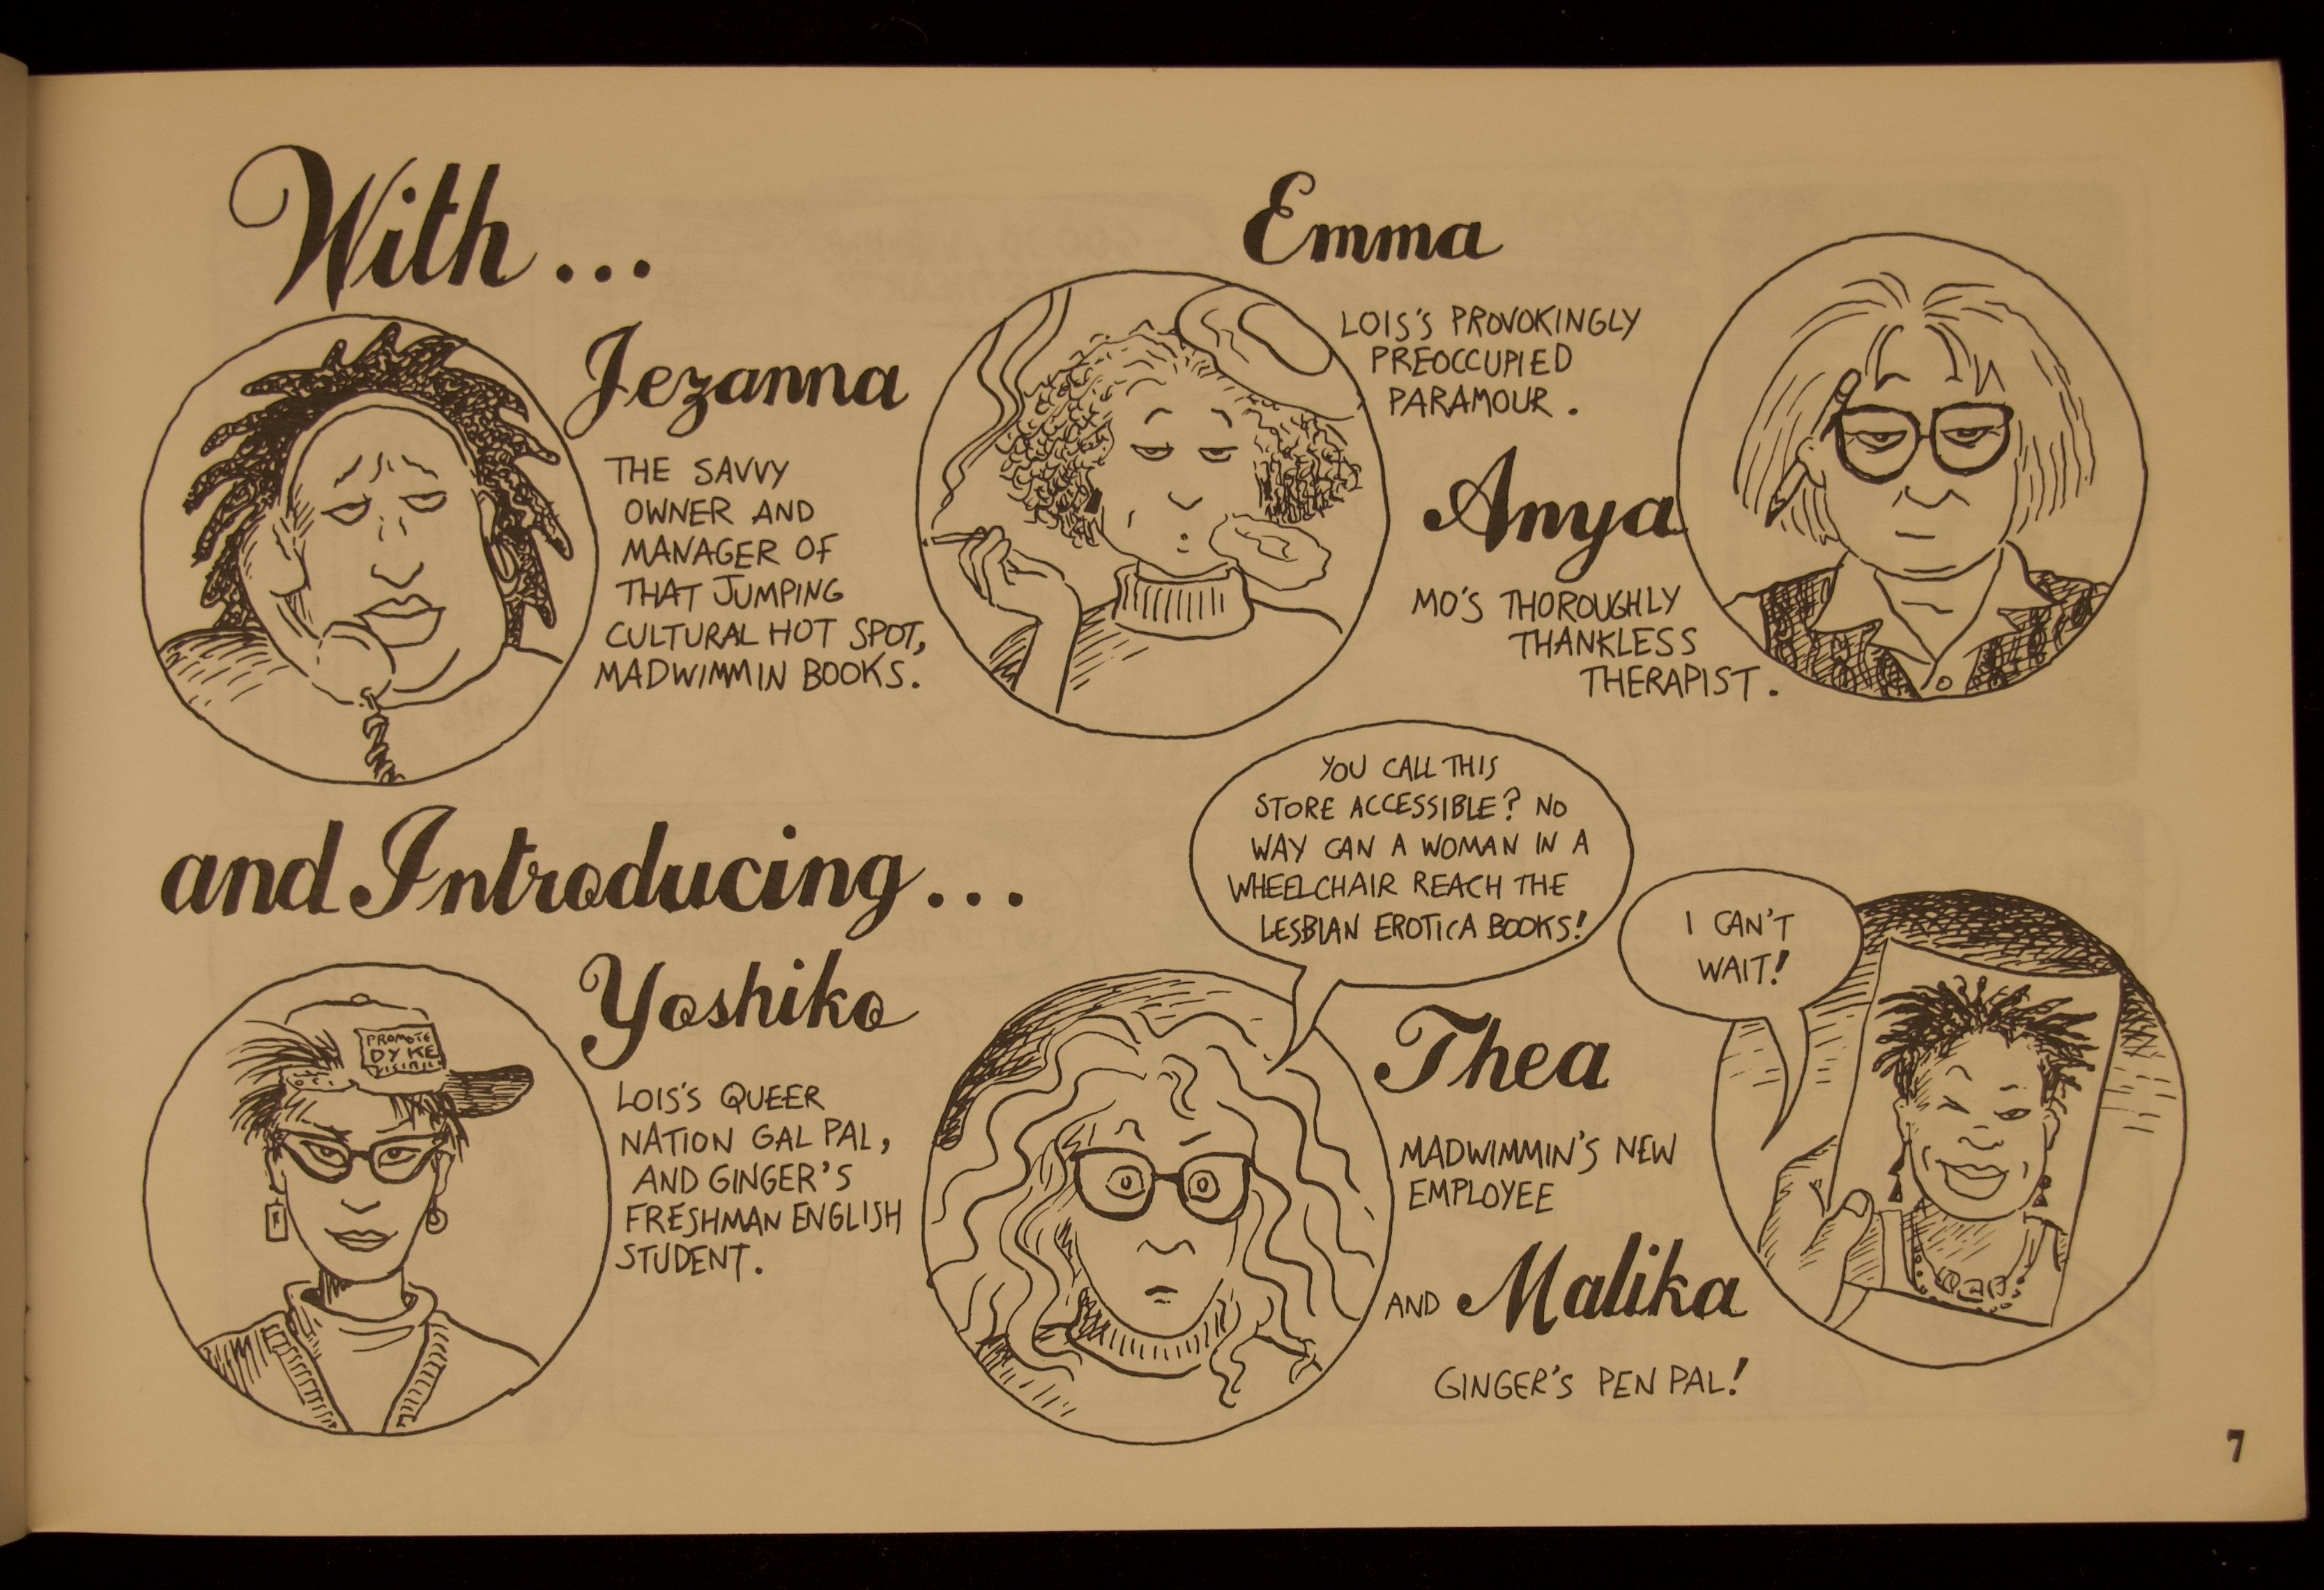 With...
Jezanna
THE SAVVY
OWNER AND
MANAGER OF
THAT JUMPING
CULTURAL HOT SPOT,
MADWIMMIN BOOKS.
Emma
LOIS'S PROVOKINGLY
PREOCCUPIED
PARAMOUR.
Anya
MO'S THOROUGHLY
THANKLESS
THERAPIST.
and Introducing...
PROMOTE
DYKE
Yoshiko
LOIS'S QUEER
NATION GAL PAL,
AND GINGER'S
FRESHMAN ENGLISH
STUDENT.
YOU CALL THIS
STORE ACCESSIBLE? NO
WAY CAN A WOMAN IN A
WHEELCHAIR REACH THE
LESBIAN EROTICA BOOKS!
Thea
MADWIMMIN'S NEW
EMPLOYEE
I CAN'T
WAIT!
AND Malika
GINGER'S PEN PAL!
7